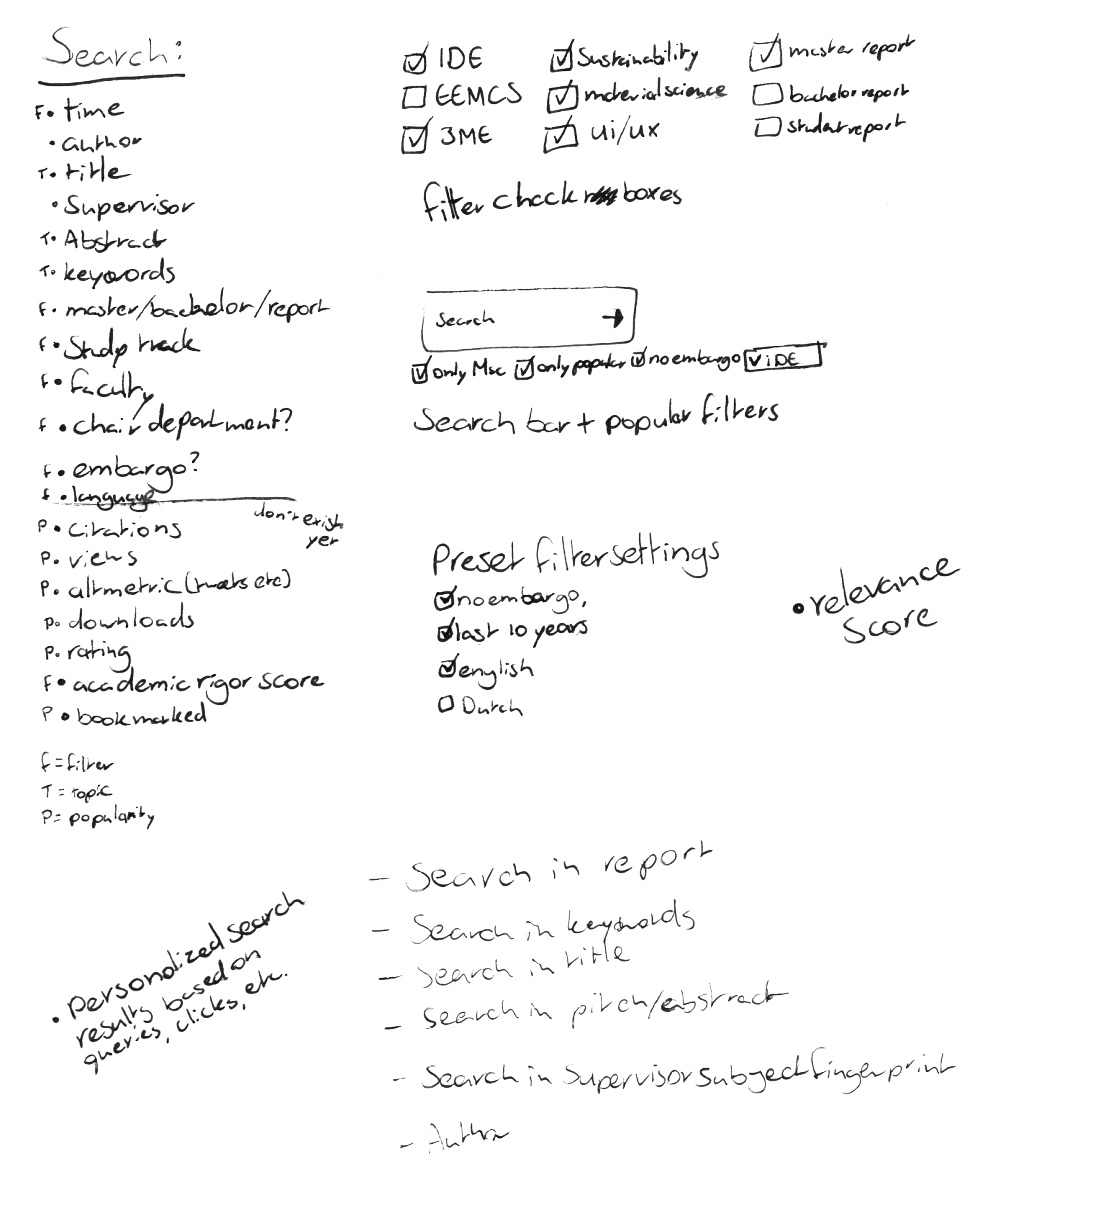 Search:
F. • time
• author
T. • title
• Supervisor
T. • Abstract
T. • keywords
f. • master/bachelor/report
f • Study track
f • faculty
f • chair/department?
f • embargo?
f • language
don't exist
yet
P • citations
P. views
P. altmetric (tweets etc)
P. downloads
P. rating
F • academic rigor score
P • bookmarked
f = filter
T = topic
P = popularity
IDE Sustainability master report
EEMCS material science bachelor report
3ME ui/ux student report
filter check boxes
Search →
only Msc only popular no embargo iDE
Search bar + popular filters
Preset filter settings
no embargo,
last 10 years
english
Dutch
• relevance
score
• Personalized search
results based on
queries, clicks, etc.
- Search in report
- Search in keywords
- Search in title
- Search in pitch/abstract
- Search in Supervisor subject fingerprint
- Author